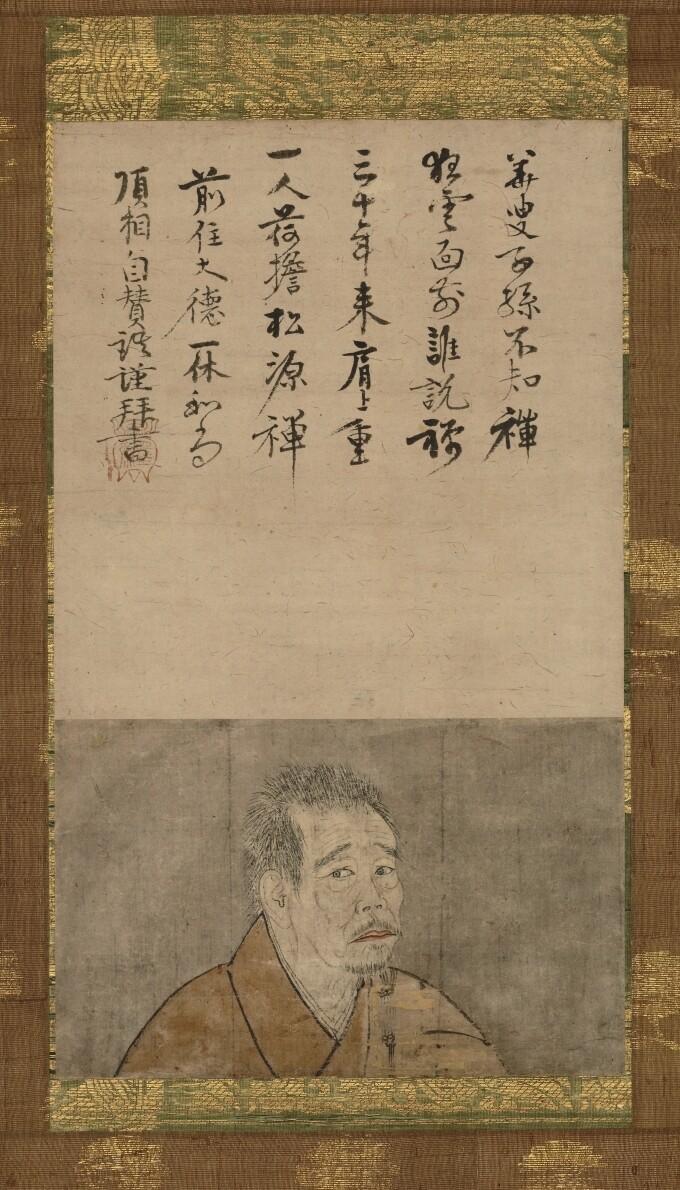 華叟子孫不知禪
狂雲面前誰説禅
三十年来肩上重
一人荷擔松源禅
前住大德一休和尚
頂相自賛謹拜書